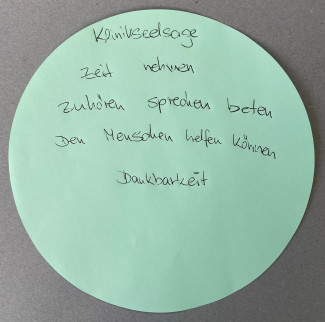 Klinikseelsage
Zeit nehmen
zuhören sprechen beten
Den Menschen helfen können
Dankbarkeit